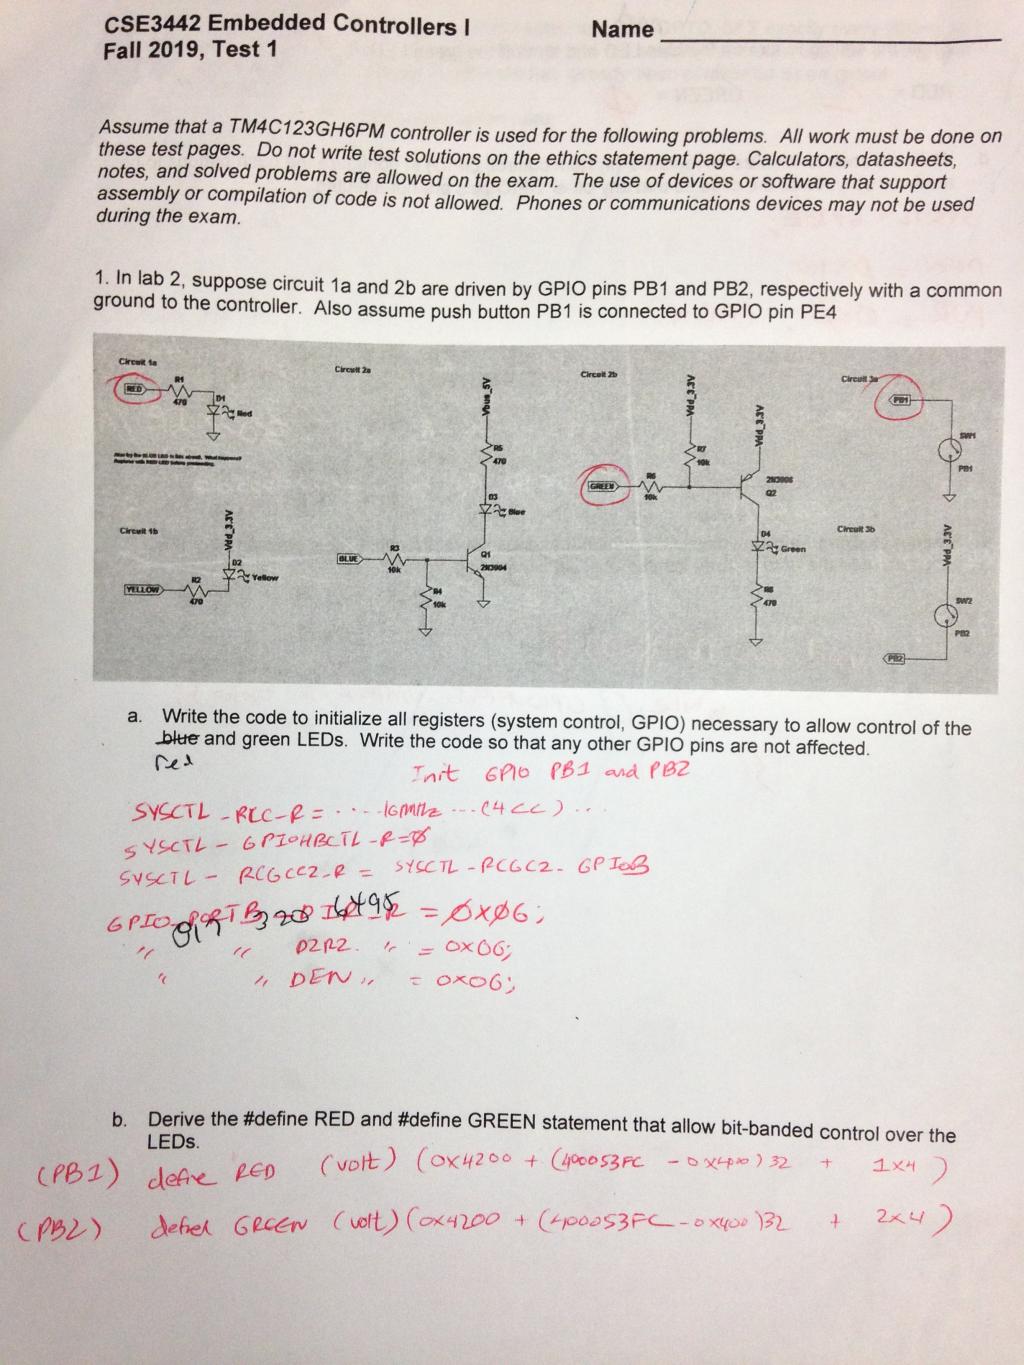 CSE3442 Embedded Controllers I Name
Fall 2019, Test 1
Assume that a TM4C123GH6PM controller is used for the following problems. All work must be done on
these test pages. Do not write test solutions on the ethics statement page. Calculators, datasheets,
notes, and solved problems are allowed on the exam. The use of devices or software that support
assembly or compilation of code is not allowed. Phones or communications devices may not be used
during the exam.
1. In lab 2, suppose circuit 1a and 2b are driven by GPIO pins PB1 and PB2, respectively with a common
ground to the controller. Also assume push button PB1 is connected to GPIO pin PE4
Circuit 1a
RED
R1
470
D1
Red
Circuit 1b
YELLOW
R2
470
Vdd_3.3V
D2
Yellow
Circuit 2a
Vbus_5V
R5
470
D3
Blue
BLUE
R3
10k
R4
10k
Q1
2N3904
Circuit 2b
GREEN
R6
10k
Vdd_3.3V
R7
10k
Vdd_3.3V
2N3906
Q2
D4
Green
470
Circuit 3a
PB1
SW1
PB1
Circuit 3b
Vdd_3.3V
SW2
PB2
PB2
a. Write the code to initialize all registers (system control, GPIO) necessary to allow control of the
blue and green LEDs. Write the code so that any other GPIO pins are not affected.
red
Init GPIO PB1 and PB2
SYSCTL - RCC-R = ... 16MHz ... (4 CC) ..
SYSCTL - GPIOHBCTL -R=0
SYSCTL - RCGCC2-R = SYSCTL -RCGC2- GPIOB
GPIO-PORTB = 0X06;
" " D2R2. " = 0X06;
" " DEN " = 0X06;
b. Derive the #define RED and #define GREEN statement that allow bit-banded control over the
LEDs.
(PB1) define RED (volt) (0X4200 + (400053FC - 0X400)32 + 1X4)
(PB2) defied GREEN (volt) (0X4200 + (400053FC-0X400)32 + 2X4)